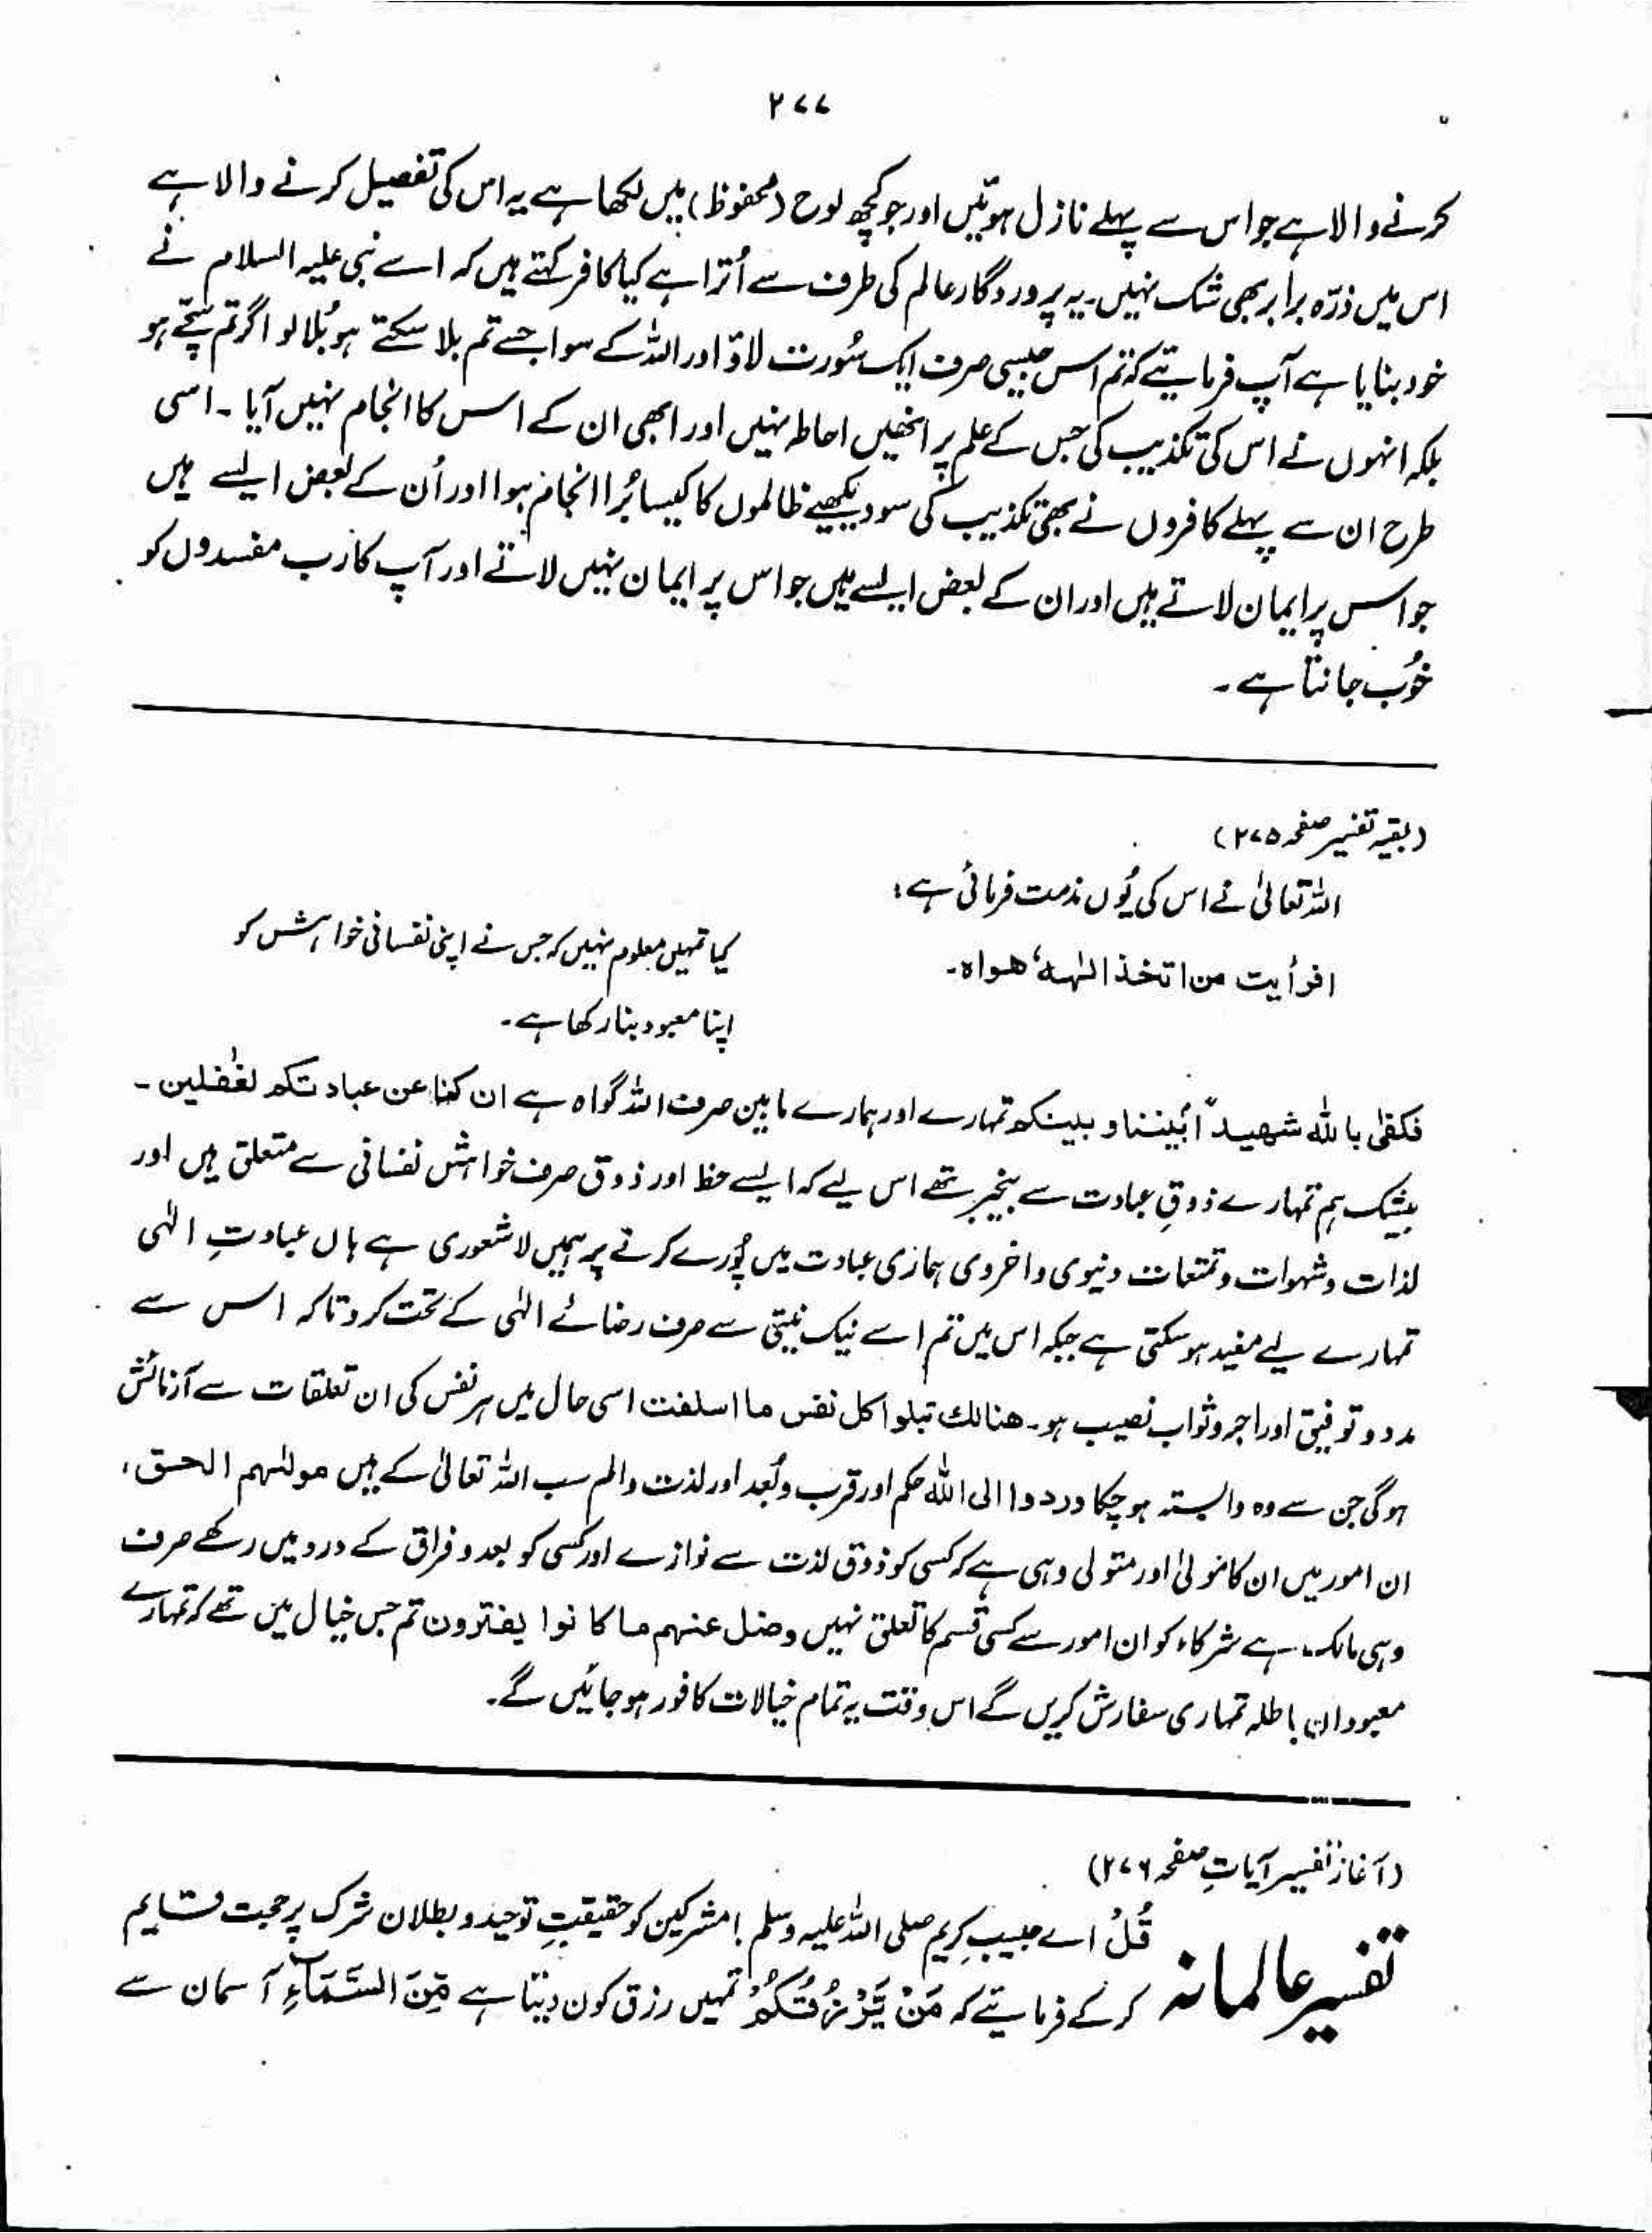 ۲۷۷
کرنے والا ہے جو اس سے پہلے نازل ہوئیں اور جو کچھ لوح (محفوظ) میں لکھا ہے یہ اس کی تفصیل کرنے والا ہے
اس میں ذرّہ برابر بھی شک نہیں۔ یہ پروردگار عالم کی طرف سے اُترا ہے کیا کافر کہتے ہیں کہ اسے نبی علیہ السلام نے
خود بنایا ہے آپ فرمائیے کہ تم اس جیسی صرف ایک سُورت لاؤ اور اللہ کے سوا جسے تم بلا سکتے ہو بُلا لو اگر تم سچّے ہو
بلکہ انہوں نے اس کی تکذیب کی جس کے علم پر انھیں احاطہ نہیں اور ابھی ان کے اس کا انجام نہیں آیا ۔ اسی
طرح ان سے پہلے کافروں نے بھی تکذیب کی سو دیکھیے ظالموں کا کیسا بُرا انجام ہوا اور اُن کے بعض ایسے ہیں
جو اس پر ایمان لاتے ہیں اور ان کے بعض ایسے ہیں جو اس پر ایمان نہیں لاتے اور آپ کا رب مفسدوں کو
خُوب جانتا ہے۔
(بقیہ تفسیر صفحہ ۲۷۵)
اللہ تعالیٰ نے اس کی یُوں مذمت فرمائی ہے؛
افرأیت من اتخذ الٰہہٗ ھواہ۔
کیا تمہیں معلوم نہیں کہ جس نے اپنی نفسانی خواہش کو
اپنا معبود بنا رکھا ہے۔
فکفٰی باللّٰہ شھیداً بَیننا و بینکم تمہارے اور ہمارے مابین صرف اللہ گواہ ہے ان کنا عن عبادتکم لغٰفلین ۔
بیشک ہم تمہارے ذوقِ عبادت سے بیخبر تھے اس لیے کہ ایسے حظ اور ذوق صرف خواہش نفسانی سے متعلق ہیں اور
لذات و شہوات و تمتعات دنیوی و اخروی ہماری عبادت میں پُورے کرنے پر ہمیں لاشعوری ہے ہاں عبادتِ الٰہی
تمہارے لیے مفید ہو سکتی ہے جبکہ اس میں تم اسے نیک نیتی سے صرف رضائے الٰہی کے تحت کرو تاکہ اس سے
مدد و توفیق اور اجر و ثواب نصیب ہو۔ ھنالك تبلوا کل نفس ما اسلفت اسی حال میں ہر نفس کی ان تعلقات سے آزمائش
ہوگی جن سے وہ وابستہ ہو چکا وردوا الی اللّٰہ حکم اور قرب و بُعد اور لذت و الم سب اللہ تعالیٰ کے ہیں مولٰہم الحق،
ان امور میں ان کا مولیٰ اور متولی وہی ہے کہ کسی کو ذوق لذت سے نوازے اور کسی کو بعد و فراق کے درد میں رکھے صرف
وہی مالک ہے شرکاء کو ان امور سے کسی قسم کا تعلق نہیں وضل عنہم ما کانوا یفترون تم جس خیال میں تھے کہ تمہارے
معبودانِ باطلہ تمہاری سفارش کریں گے اس وقت یہ تمام خیالات کافور ہو جائیں گے۔
(آغاز تفسیر آیاتِ صفحہ ۲۷۶)
تفسیر عالمانہ
قُلْ اے حبیبِ کریم صلی اللہ علیہ وسلم! مشرکین کو حقیقتِ توحید و بطلان شرک پر حجت قایم
کر کے فرمائیے کہ مَنْ یَّرْزُقُکُمْ تمہیں رزق کون دیتا ہے مِّنَ السَّمَآءِ آسمان سے